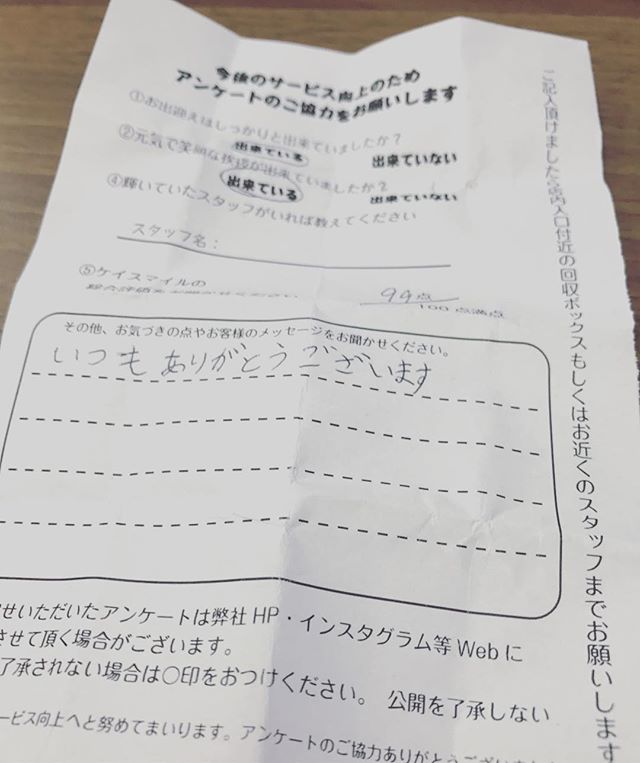 今後のサービス向上のため
アンケートのご協力をお願いします
①お出迎えはしっかりと出来ていましたか？
出来ている 出来ていない
②元気で笑顔な挨拶が出来ていましたか？
出来ている 出来ていない
④輝いていたスタッフがいれば教えてください
スタッフ名：
⑤ケイスマイルの
総合評価をお聞かせください 99点
100点満点
その他、お気づきの点やお客様のメッセージをお聞かせください。
いつもありがとうございます
せいただいたアンケートは弊社HP・インスタグラム等Webに
させて頂く場合がございます。
了承されない場合は〇印をおつけください。 公開を了承しない
ービス向上へと努めてまいります。アンケートのご協力ありがとうございました
ご記入頂けましたら店内入口付近の回収ボックスもしくはお近くのスタッフまでお願いします